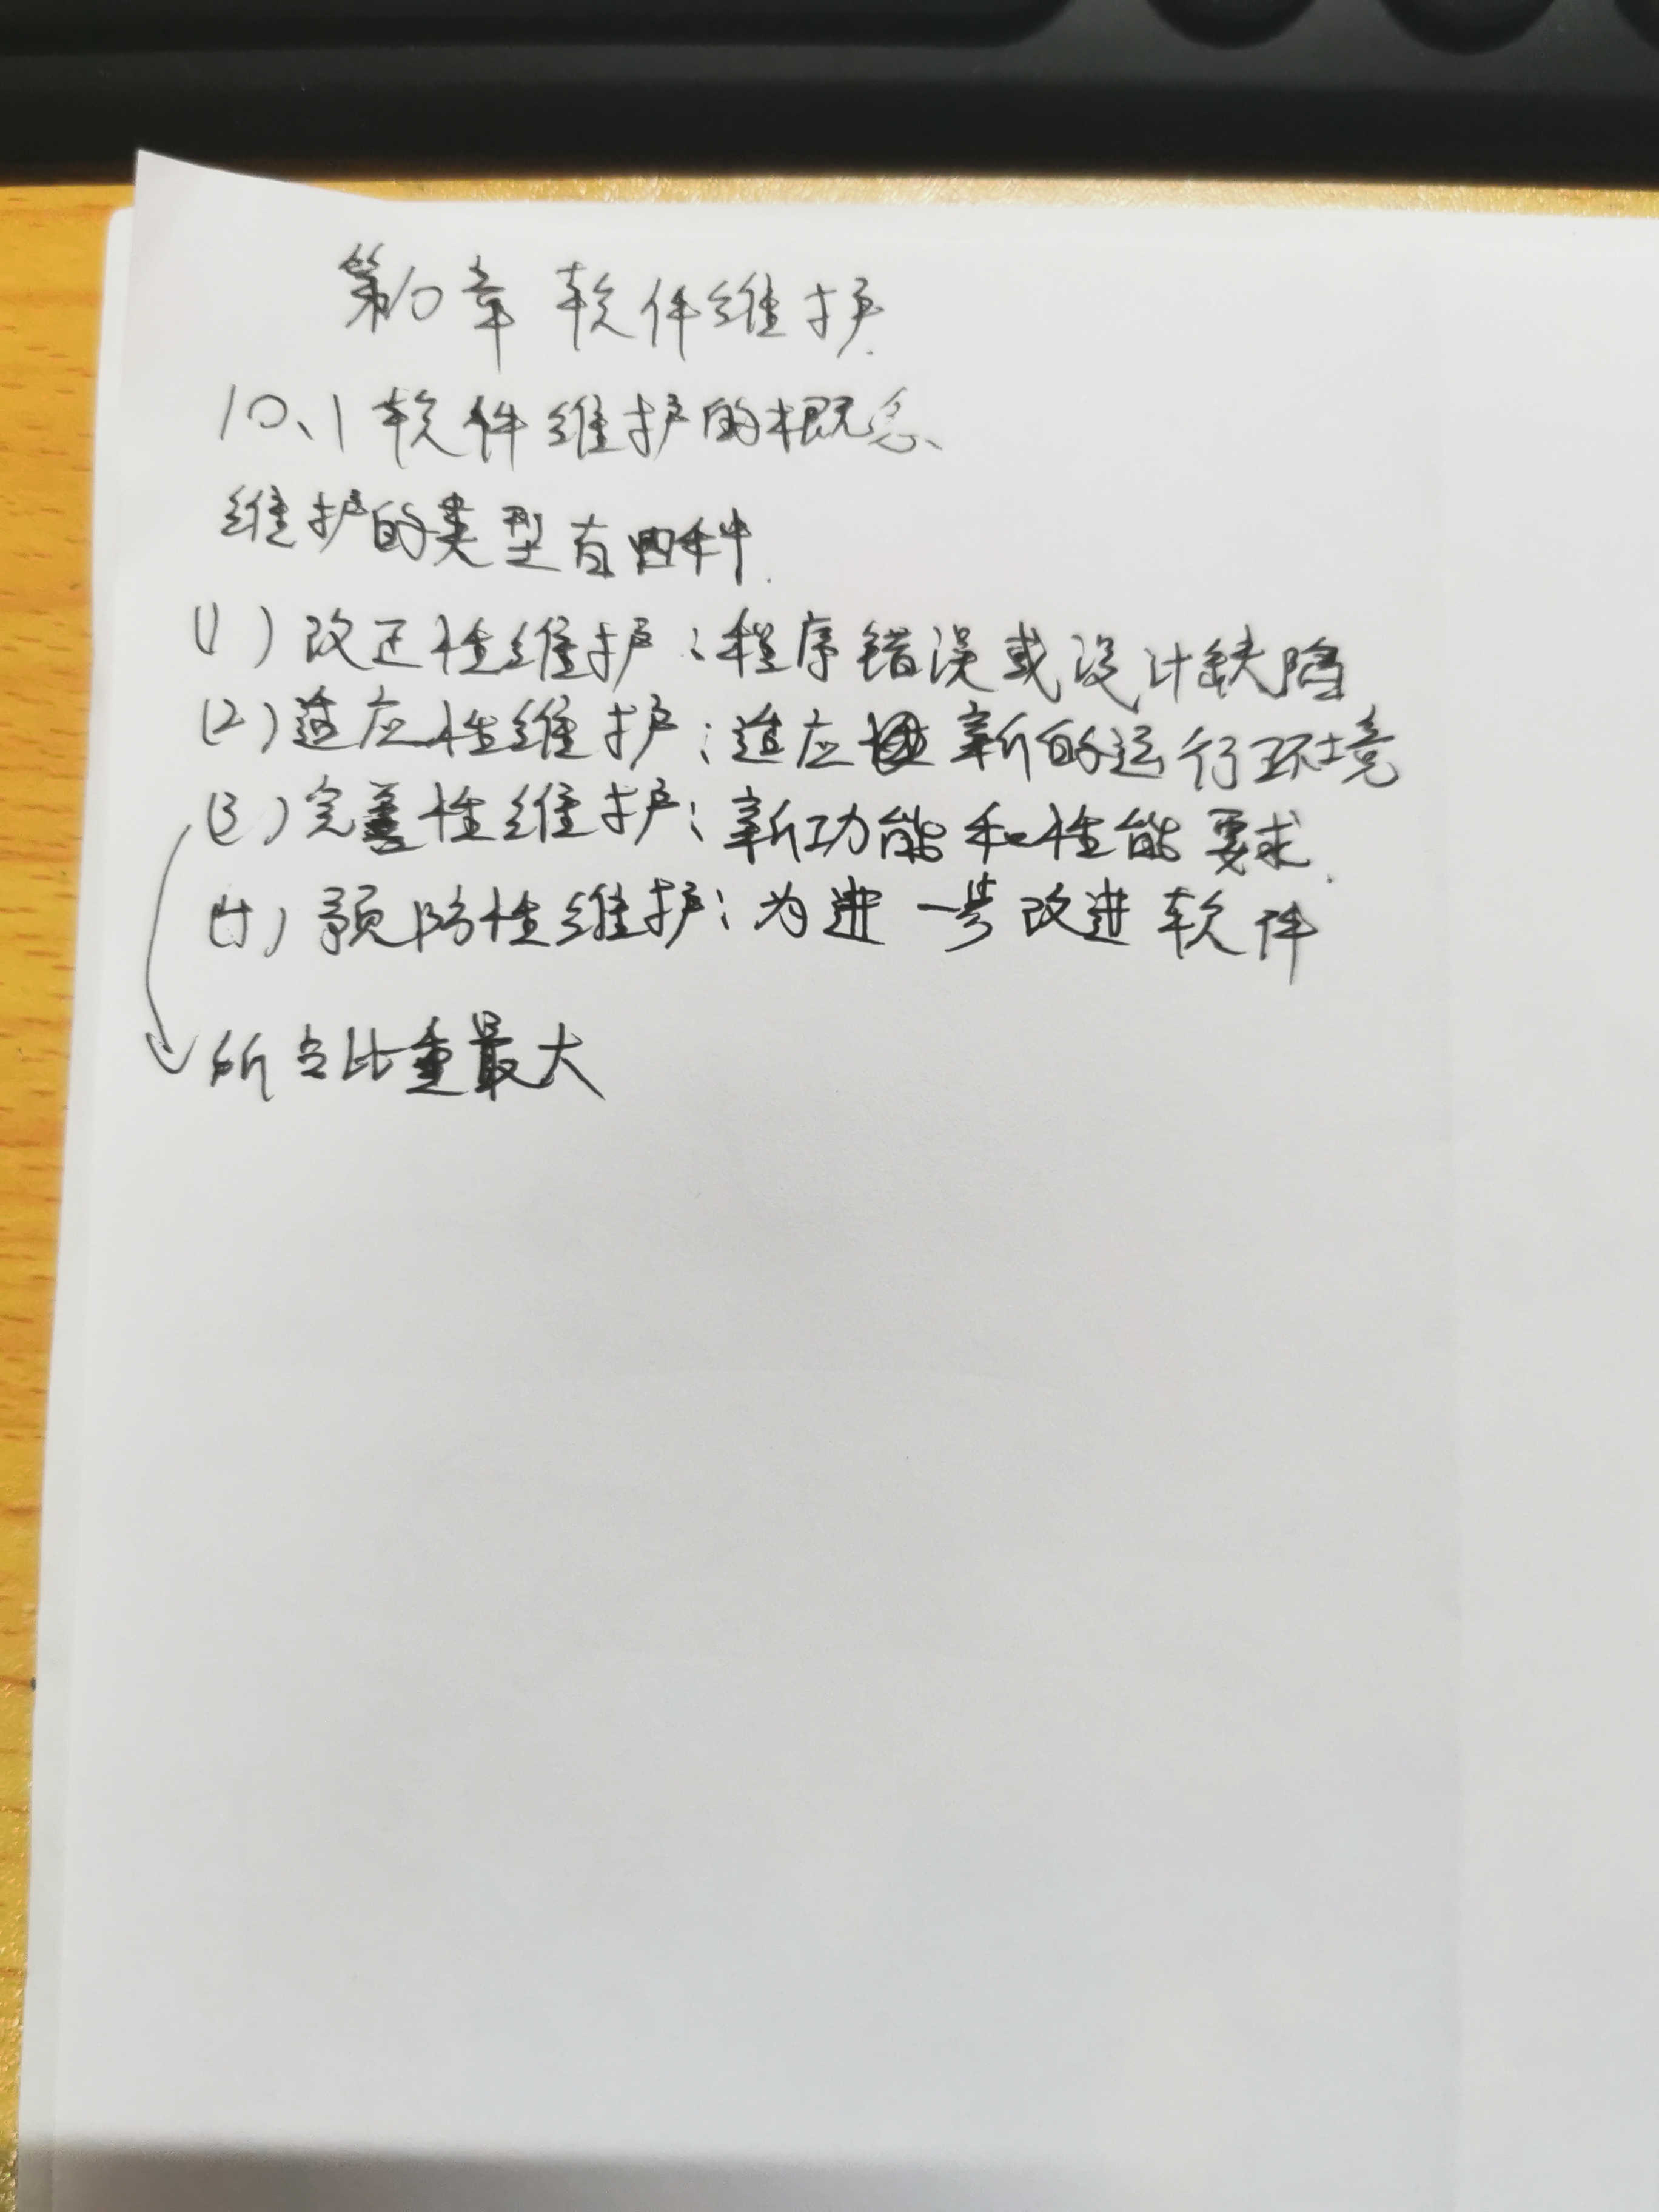 第10章 软件维护.
10、1 软件维护的概念、
维护的类型有四种.
(1) 改正性维护：程序错误或设计缺陷
(2) 适应性维护：适应新的运行环境
(3) 完善性维护：新功能和性能要求.
(4) 预防性维护：为进一步改进软件
所占比重最大